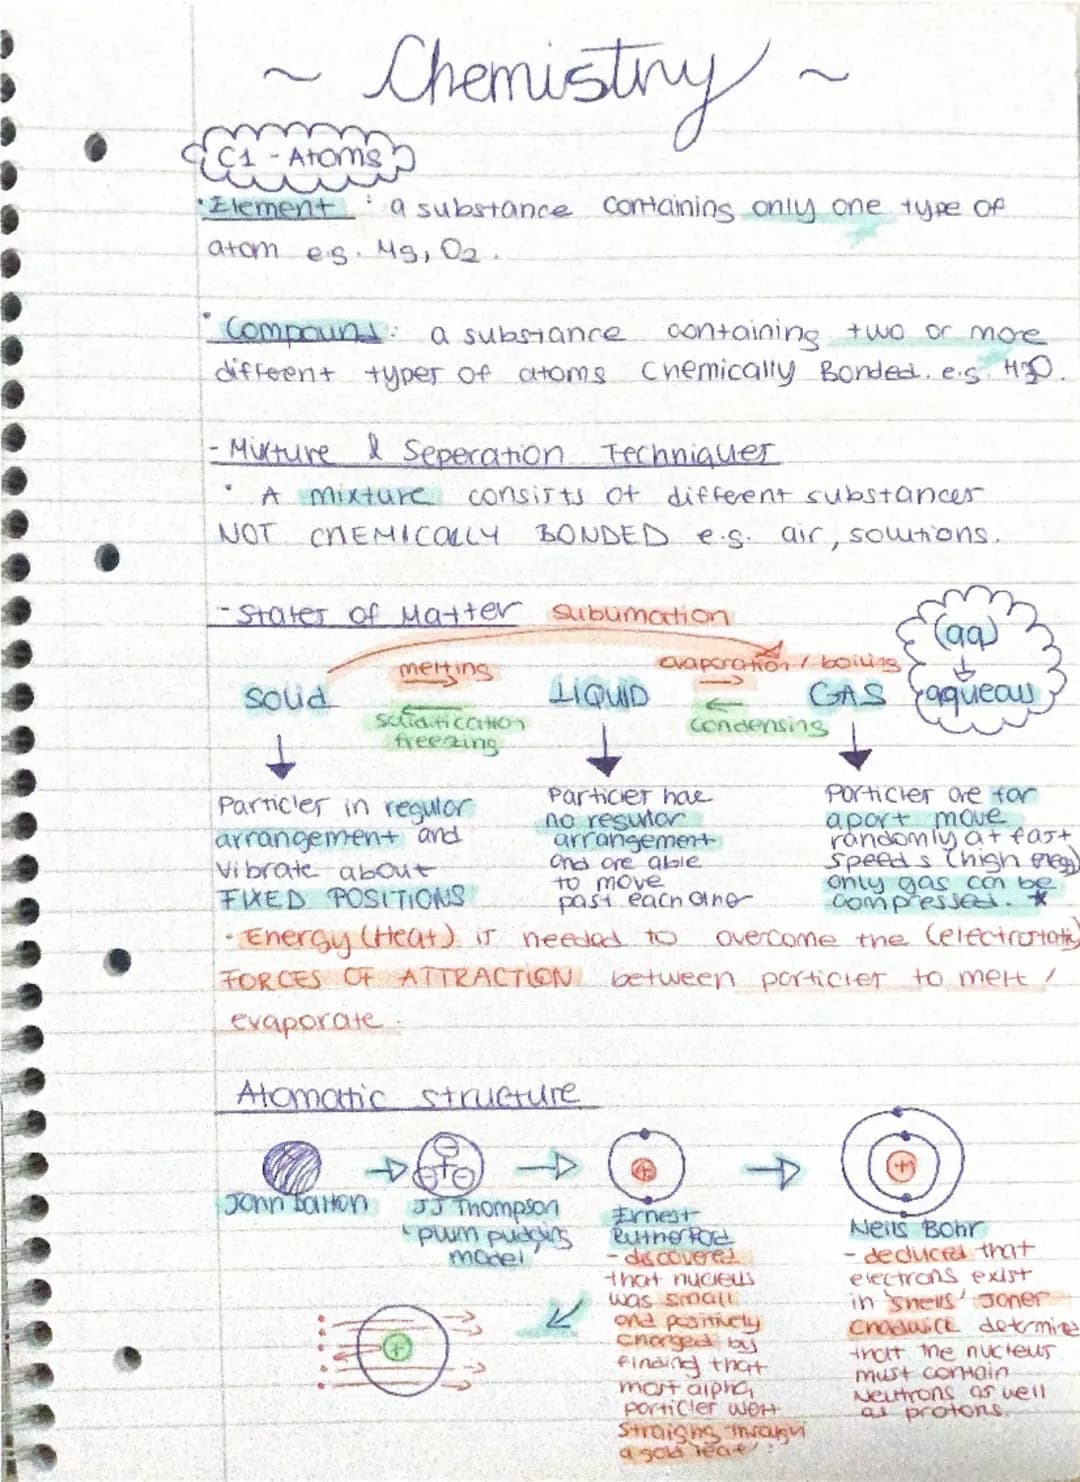 ~ Chemistry ~
C1 - Atoms
• Element : a substance containing only one type of
atom e.g. Mg, O2.
• Compound: a substance containing two or more
different types of atoms chemically Bonded. e.g. H2O.
- Mixture & Seperation Techniques
• A mixture consists of different substances
NOT CHEMICALLY BONDED e.g. air, solutions.
- States of Matter
sublimation
(aq)
↓
aqueous
melting
evaporation / boiling
Solid
LIQUID
GAS
solidification
freezing
condensing
Particles in regular
arrangement and
vibrate about
FIXED POSITIONS
Particles have
no regular
arrangement
and are able
to move
past each other
Particles are far
apart move
randomly at fast
speeds (high energy)
only gas can be
compressed. *
• Energy (Heat) is needed to overcome the (electrostatic)
FORCES OF ATTRACTION between particles to melt /
evaporate.
Atomatic structure
John Dalton
JJ Thompson
'plum pudding
model'
Ernest
Rutherford
- discovered
that nucleus
was small
and positively
charged by
finding that
most alpha
particles went
straight through
a gold leaf
Neils Bohr
- deduced that
electrons exist
in 'shells' Jamer
Chadwick determine
that the nucleus
must contain
Neutrons as well
as protons.